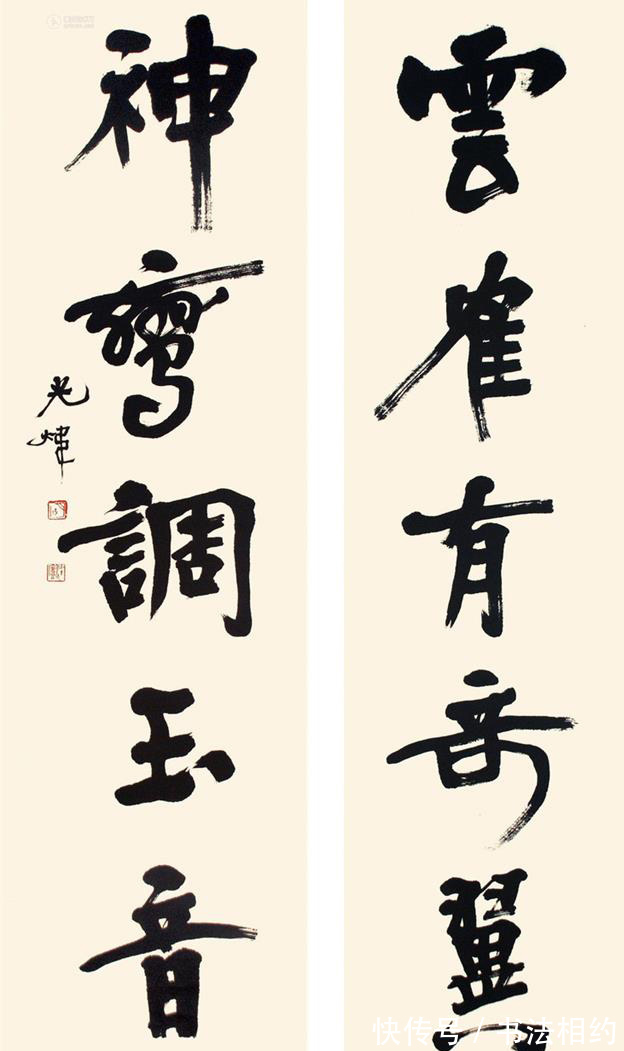 雲隺有奇翼
神鸞調玉音
光煒
快传号 / 书法相约